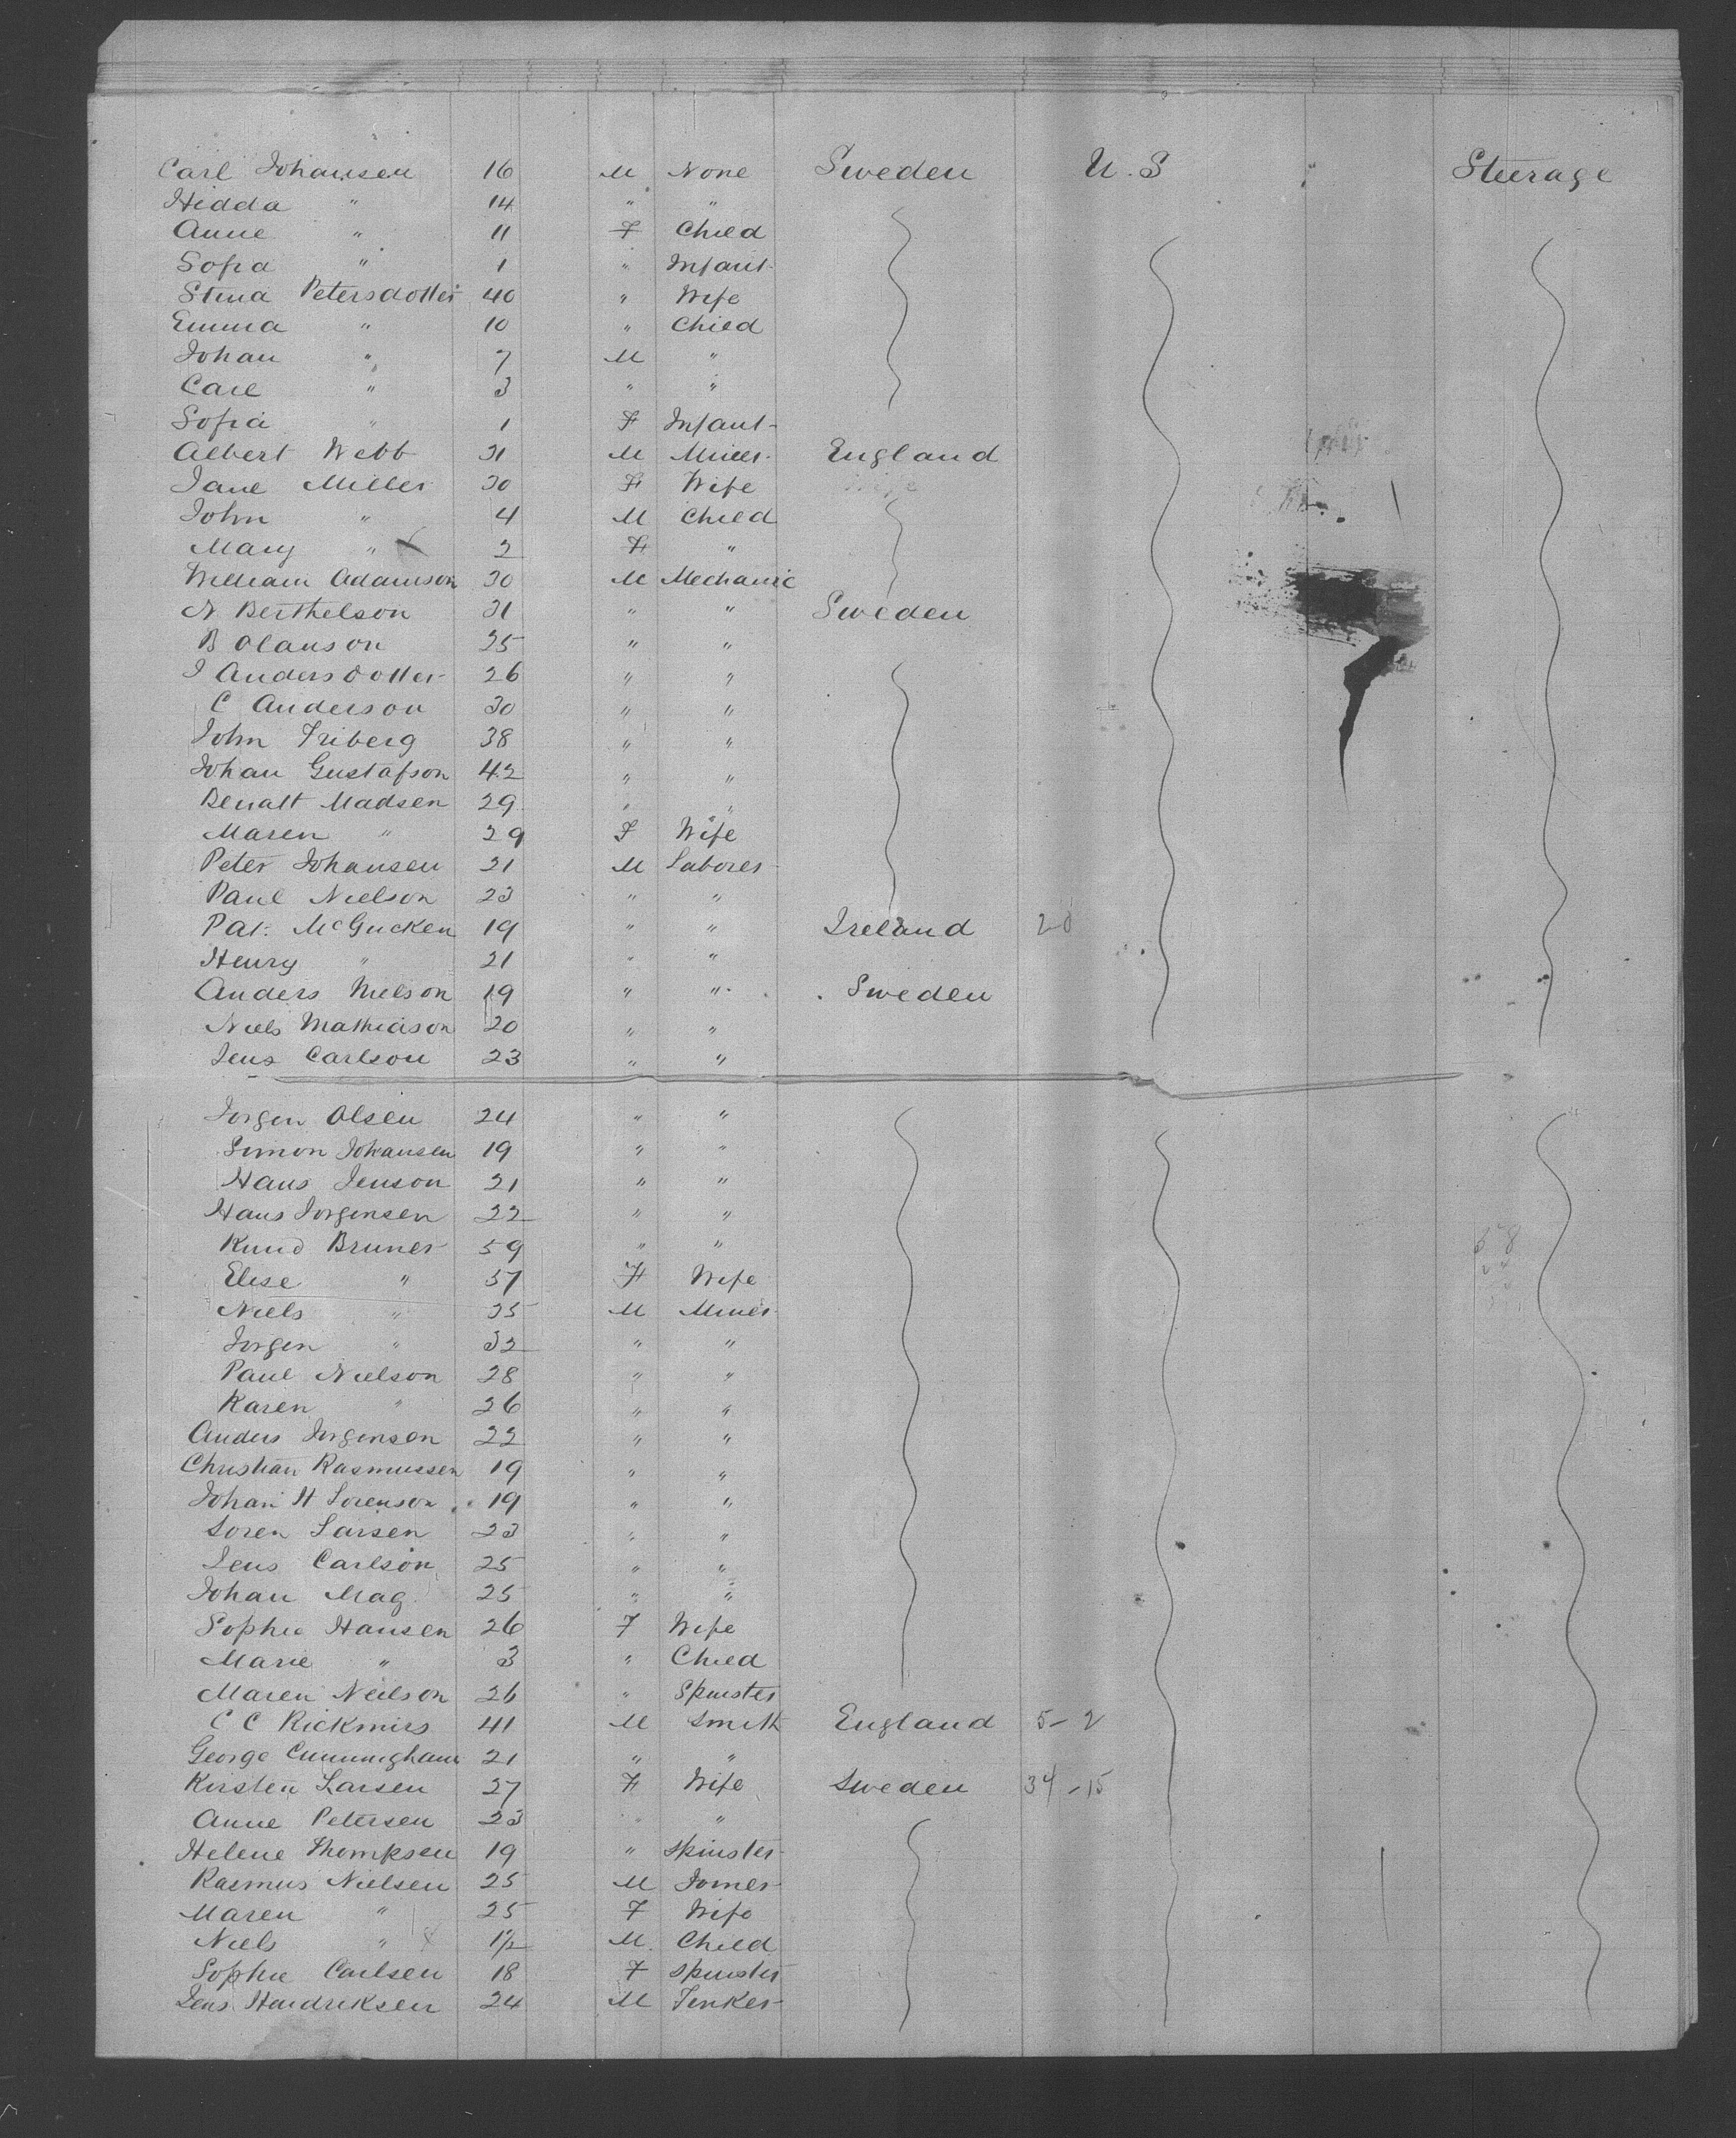 Carl Johansen 16 M None Sweden U.S " Steerage
Hidda " 14 " "
Anne " 11 F Child
Sofia " 1 " Infant
Stina Petersdotter 40 " Wife
Emma " 10 " Child
Johan " 7 M "
Carl " 3 " "
Sofia " 1 F Infant
Albert Webb 31 M Miner England
Jane Miller 30 F Wife
John " 4 M Child
Mary " 2 F "
William Adamson 30 M Mechanic
N. Berthelson 31 " " Sweden
B Olauson 25 " "
J Andersdotter 26 " "
C Anderson 30 " "
John Friberg 38 " "
Johan Gustafson 42 " "
Benatt Madsen 29 " "
Maren " 29 F Wife
Peter Johansen 21 M Laborer
Paul Nielson 23 " "
Pat. McGucken 19 " " Ireland 20
Henry " 21 " "
Anders Nielson 19 " " Sweden
Niels Mathiason 20 " "
Jens Carlson 23 " "
Jorgen Olsen 24 " "
Simon Johansen 19 " "
Hans Jenson 21 " "
Hans Jorgensen 22 " "
Knud Bruner 59 " "
Elise " 57 F Wife
Niels " 35 M Miner
Jorgen " 32 " "
Paul Nielson 28 " "
Karen " 26 " "
Anders Jorgensen 22 " "
Christian Rasmussen 19 " "
Johan H Sorenson 19 " "
Soren Larsen 23 " "
Jens Carlson 25 " "
Johan Mag 25 " "
Sophie Hansen 26 F Wife
Marie " 3 " Child
Maren Neilson 26 " Spinster
C C Rickmirs 41 M Smith England 5-2
George Cunningham 21 " "
Kirsten Larsen 27 F Wife Sweden 34-15
Anne Petersen 23 " "
Helene Thompsen 19 " Spinster
Rasmus Nielsen 25 M Joiner
Maren " 25 F Wife
Niels " 1½ M. Child
Sophie Carlsen 18 F Spinster
Jens Hendriksen 24 M Tinker